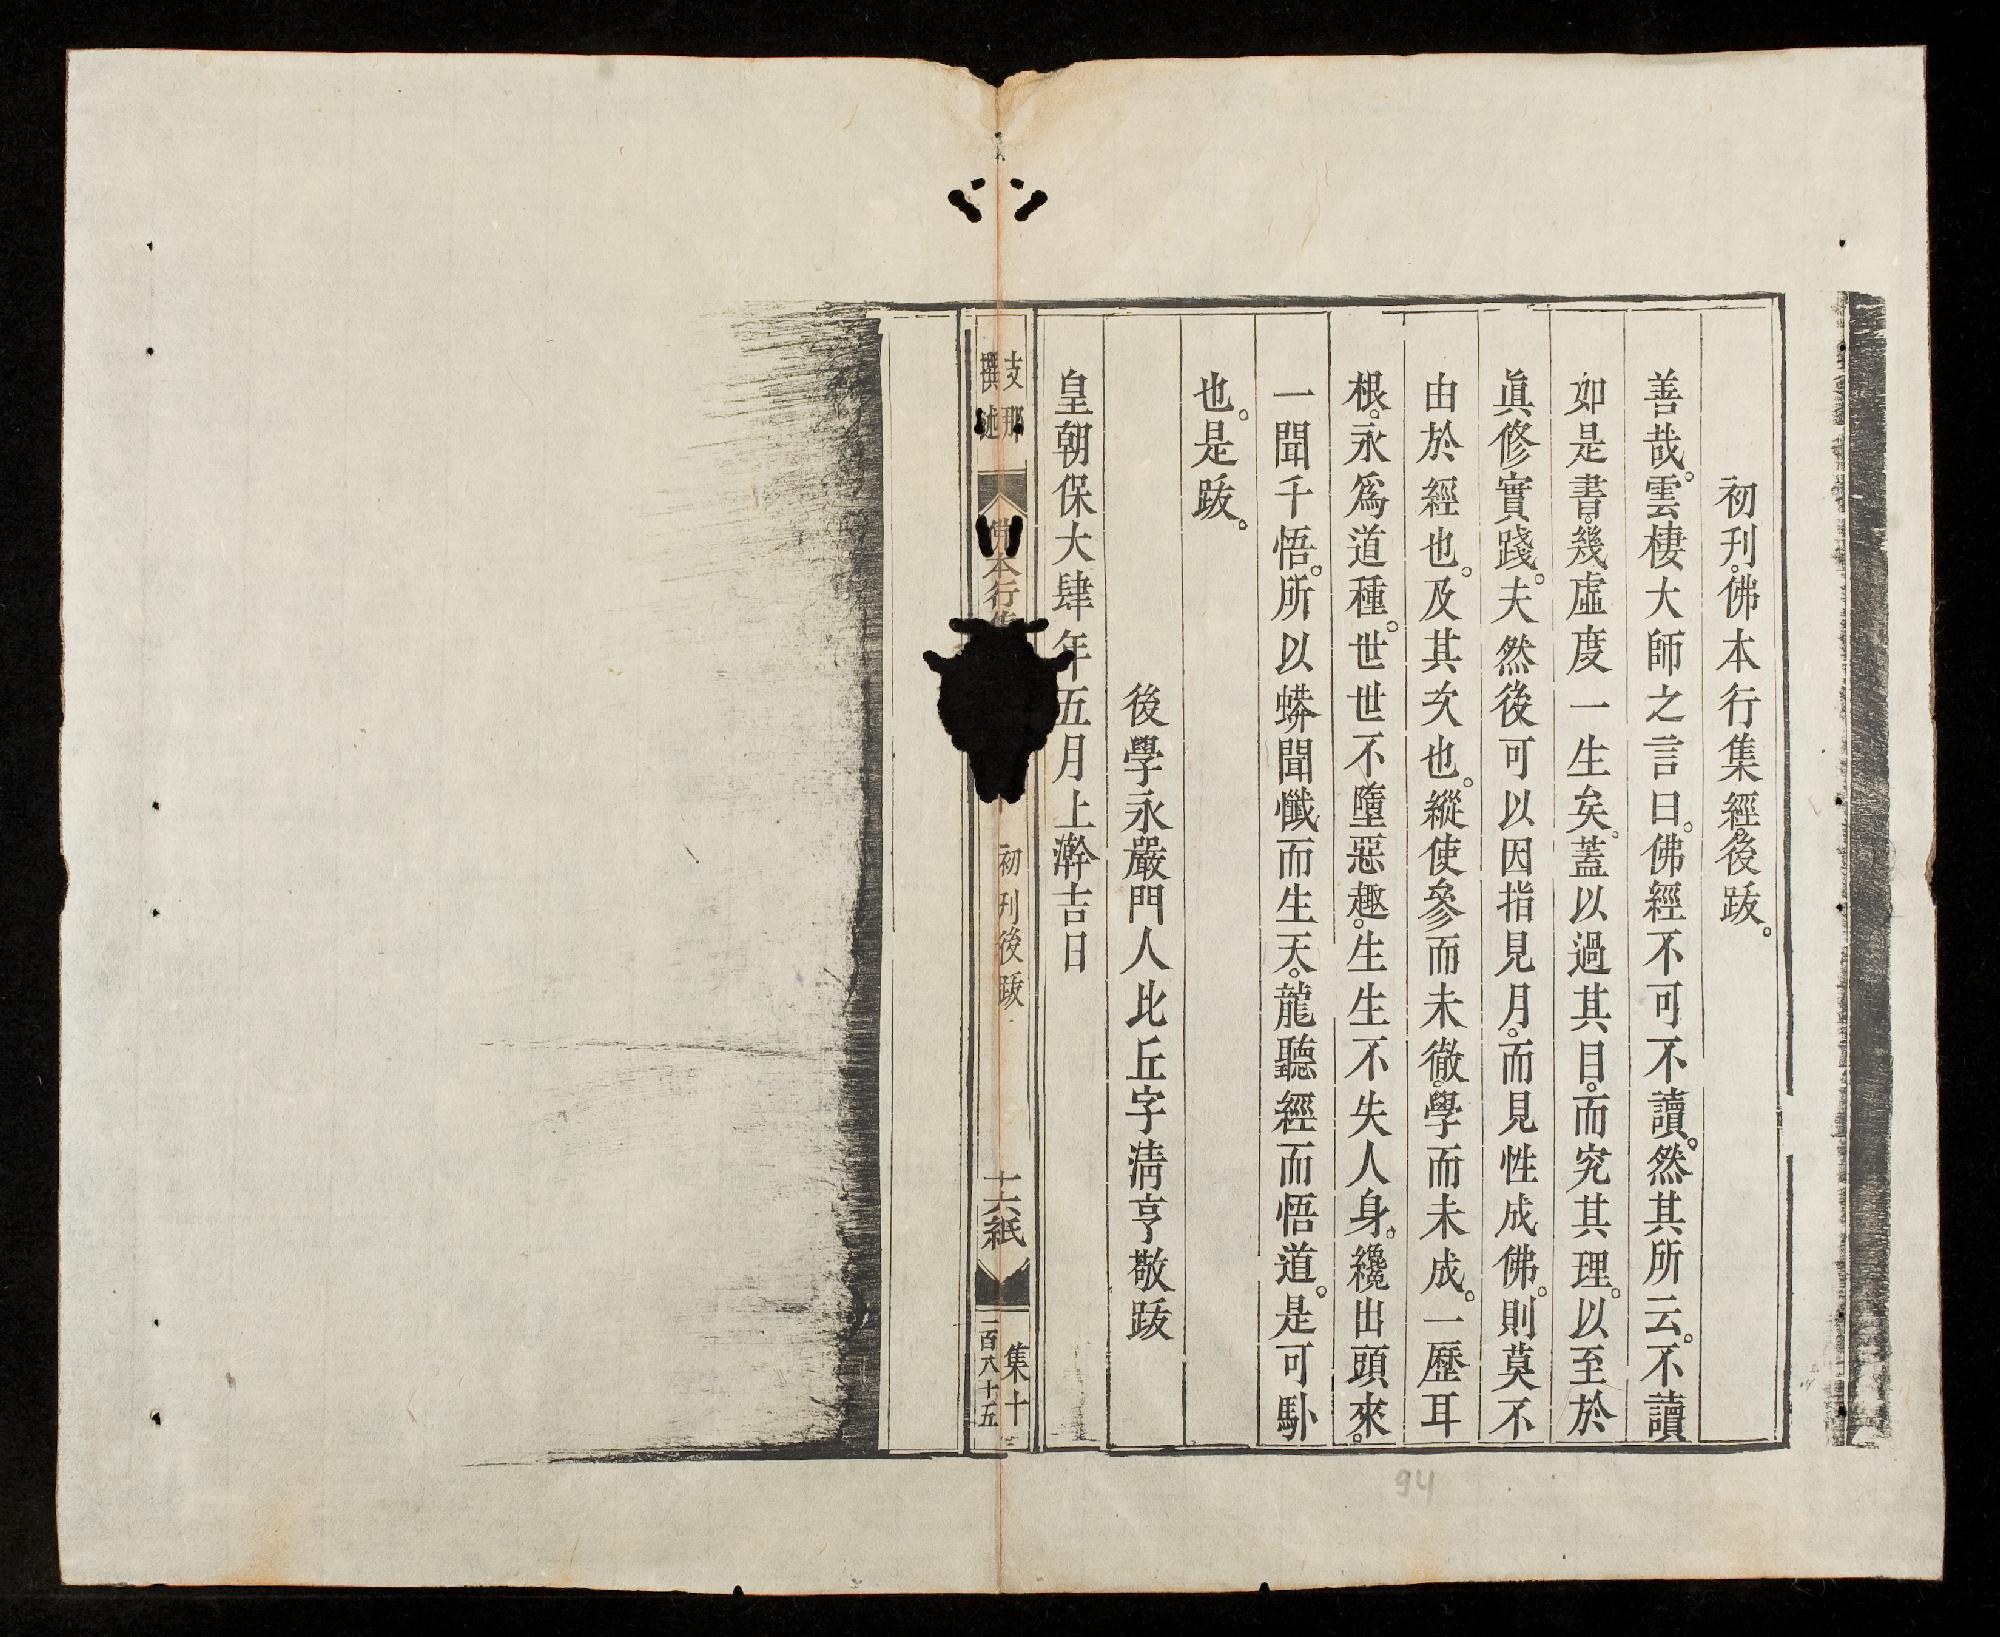 初刊佛本行集經後跋。
善哉。雲棲大師之言曰。佛經不可不讀。然其所云。不讀
如是書。幾虛度一生矣。蓋以過其目。而究其理。以至於
眞修實踐。夫然後可以因指見月。而見性成佛。則莫不
由於經也。及其次也。縱使參而未徹。學而未成。一歷耳
根。永爲道種。世世不墮惡趣。生生不失人身。纔出頭來。
一聞千悟。所以蟒聞懺而生天。龍聽經而悟道。是可卧
也。是跋。
後學永嚴門人比丘字清亨敬跋
皇朝保大肆年五月上澣吉日
支那
撰述
佛本行集
初刊後跋
十六紙
集十
二百八十五
94